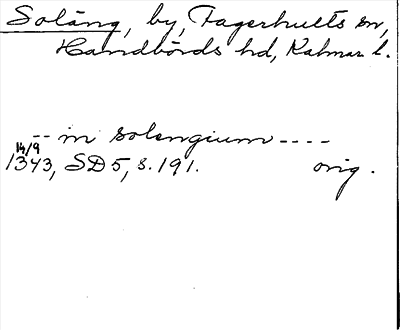 Soläng, by, Fagerhults sn,
Handbörds hd, Kalmar l.
-- in solengium ----
14/9
1343, SD 5, s. 191. orig.